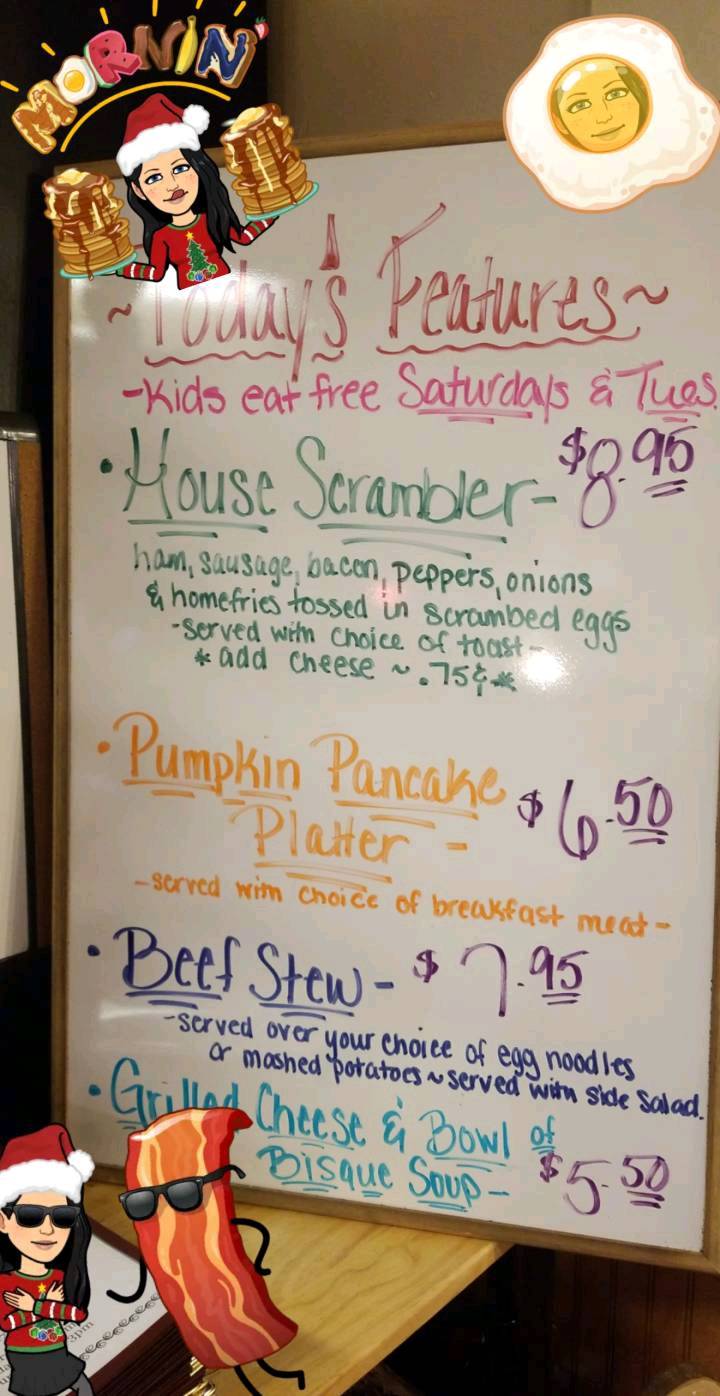 MORNIN'
~Today's Features~
-Kids eat free Saturdays & Tues.
• House Scrambler- $8.95
ham, sausage, bacon, peppers, onions
& homefries tossed in scrambed eggs
-served with choice of toast-
* add cheese ~ .75¢ *
• Pumpkin Pancake
Platter - $6.50
-served with choice of breakfast meat-
• Beef Stew- $7.95
-served over your choice of egg noodles
or mashed potatoes ~ served with side salad.
• Grilled Cheese & Bowl of
Bisque Soup- $5.50
3pm